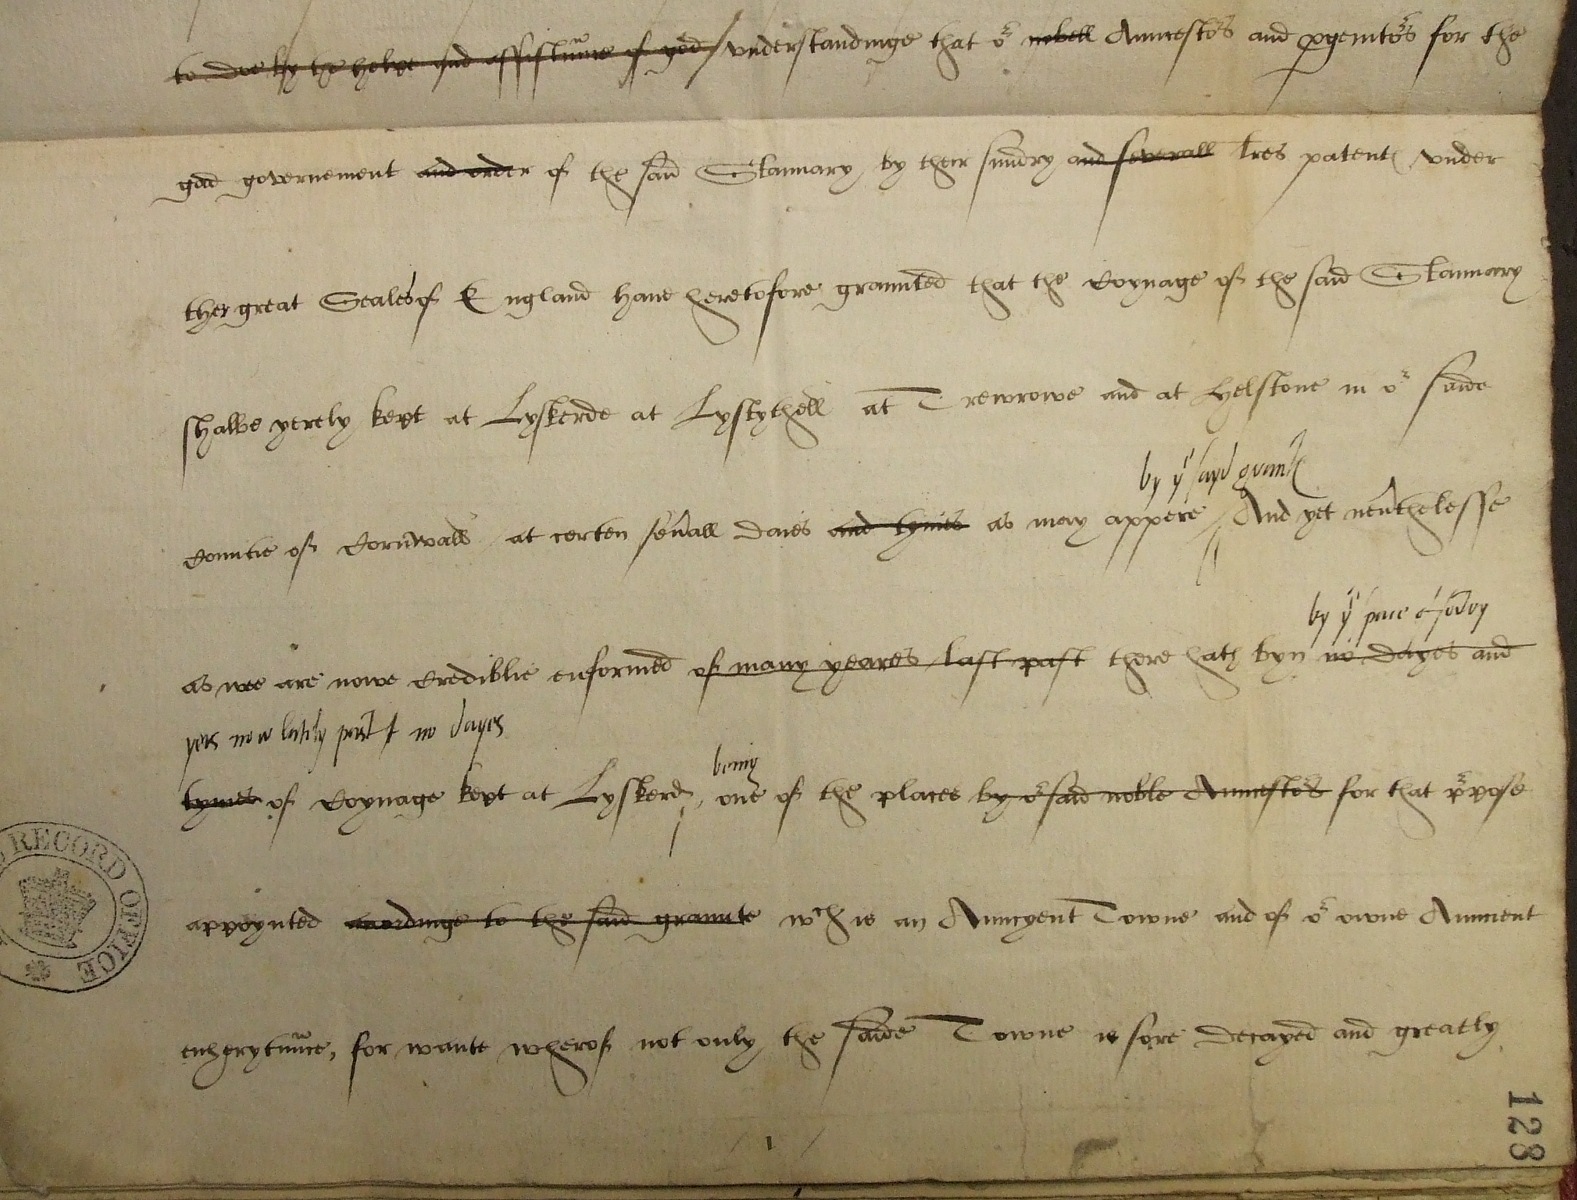 to doe by the helpe and assistaunce of god / understandinge that or nobell Auncestors and pgenitors for the
god governement and order of the said Stannary by their sundry and severall lres patents under
ther great Seales of England have heretofore graunted that the Coynage of the said Stannary
shalbe yerely kept at Lyskerde at Lystythell at Trewrowe and at Helstone in or saide
by ye sayd graunts
Countie of Cornwall at certen sevall daies and tymes as may appere / And yet nevthelesse
by ye space of
as wee are nowe Crediblie enformed of many yeares last past there hath byn no dayes and
yers now lately past no dayes
being
tymes of Coynage kept at Lyskerd, one of the places by or said noble Auncestors for that prpose
appoynted accordinge to the said graunte wch is an Auncyent Towne and of or owne Auncient
enherytaunce, for wante wherof not only the saide Towne is sore decayed and greatly
RECORD OFFICE
128